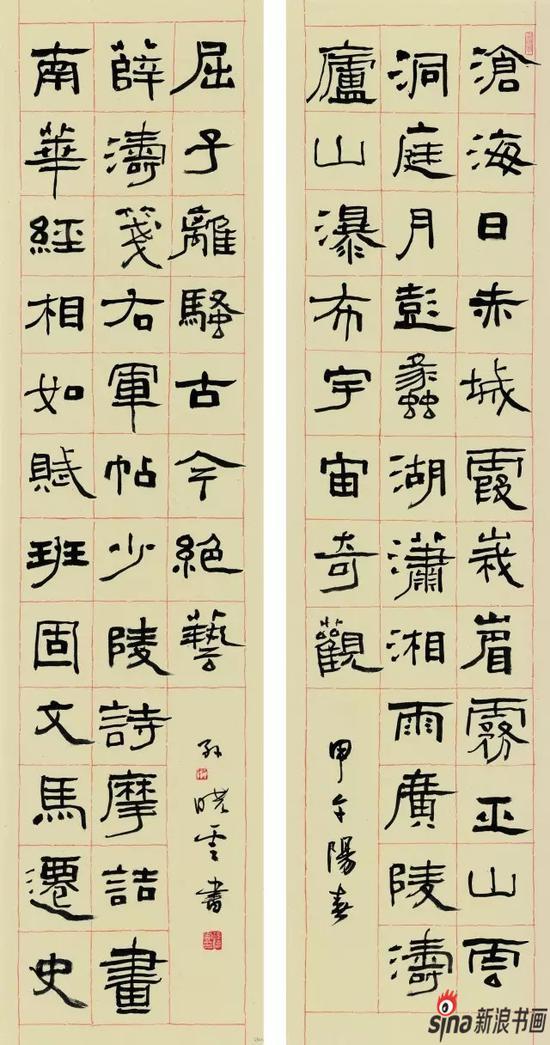 滄海日赤城霞峩眉霧巫山雲
洞庭月彭蠡湖瀟湘雨廣陵濤
廬山瀑布宇宙奇觀
甲午陽春
南華經相如賦班固文馬遷史
薛濤箋右軍帖少陵詩摩詰畫
屈子離騷古今絕藝
孫曉雲書
sina新浪书画